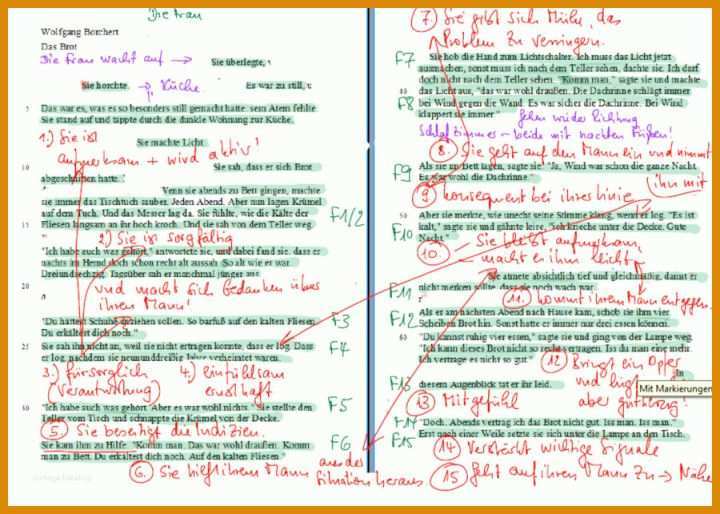 Die Frau
Wolfgang Borchert
Das Brot
Die Frau wacht auf → Sie überlegte, w
Sie horchte. → Küche. Es war zu still, u
5 Das war es, was es so besonders still gemacht hatte. sein Atem fehlte.
Sie stand auf und tappte durch die dunkle Wohnung zur Küche.
1.) Sie ist
aufmerksam + wird aktiv!
Sie machte Licht
10 Sie sah, dass er sich Brot
abgeschnitten hatte.
Venn sie abends zu Bett gingen, machte
sie immer das Tischtuch sauber. Jeden Abend. Aber nun lagen Krümel
auf dem Tuch. Und das Messer lag da. Sie fühlte, wie die Kälte der
15 Fliesen langsam an ihr hoch kroch. Und sie sah von dem Teller weg.
F1/2
2) Sie ist sorgfältig
"Ich habe euch was gehört," antwortete sie, und dabei fand sie, dass er
nachts im Hemd doch schon recht alt aussah. So alt wie er war.
Dreiundsechzig. Tagsüber sah er manchmal jünger aus.
20 und macht sich Gedanken über
ihren Mann!
"Du hättest Schuhe anziehen sollen. So barfuß auf den kalten Fliesen. F3
Du erkältest dich noch."
25 Sie sah ihn nicht an, weil sie nicht ertragen konnte, dass er log. Dass F4
er log, nachdem sie neununddreißig Jahre verheiratet waren.
3.) fürsorglich 4.) einfühlsam
(Verantwortung) ernsthaft
30 "Ich habe auch was gehört. Aber es war wohl nichts." Sie stellte den F5
Teller vom Tisch und schnappte die Krümel von der Decke.
5 Sie beseitigt die Indizien.
Sie kam ihm zu Hilfe. "Komm man. Das war wohl draußen. Komm F6
man zu Bett. Du erkältest dich noch. Auf den kalten Fliesen."
6. Sie hilft ihrem Mann aus der
Situation heraus
7.) Sie gibt sich Mühe, das
Problem zu verringern.
F7 Sie hob die Hand zum Lichtschalter. Ich muss das Licht jetzt
ausmachen, sonst muss ich nach dem Teller sehen, dachte sie. Ich darf
doch nicht nach dem Teller sehen. "Komm man," sagte sie und machte
40 das Licht aus, "das war wohl draußen. Die Dachrinne schlägt immer
F8 bei Wind gegen die Wand. Es war sicher die Dachrinne. Bei Wind
klappert sie immer."
gehen wieder Richtung
Schlafzimmer – beide mit nackten Füßen!
8. Sie geht auf den Mann ein und nimmt
F9 Als sie im Bett lagen, sagte sie: "Ja, Wind war schon die ganze Nacht.
Es war wohl die Dachrinne."
ihn mit
9 konsequent bei ihrer Linie
50 Aber sie merkte, wie unecht seine Stimme klang, wenn er log. "Es ist
F10 kalt," sagte sie und gähnte leise, "ich krieche unter die Decke. Gute
Nacht."
10. – Sie bleibt aufmerksam
– macht er ihm leicht
Sie atmete absichtlich tief und gleichmäßig, damit er
F11 nicht merken sollte, dass sie noch wach war.
11. kommt ihrem Mann entgegen.
F12 Als er am nächsten Abend nach Hause kam, schob sie ihm vier
Scheiben Brot hin. Sonst hatte er immer nur drei essen können.
60 "Du kannst ruhig vier essen," sagte sie und ging von der Lampe weg.
"Ich kann dieses Brot nicht so recht vertragen. Iss du man eine mehr.
Ich vertrage es nicht so gut."
12 Bringt ein Opfer
In
F13 diesem Augenblick tat er ihr leid.
und lügt
Mit Markierungen
13 Mitgefühl aber gutherzig!
F14 "Doch. Abends vertrag ich das Brot nicht gut. Iss man. Iss man."
F15 Erst nach einer Weile setzte sie sich unter die Lampe an den Tisch.
14 Verstärkt wichtige Signale
15 Geht auf ihren Mann zu → Nähe